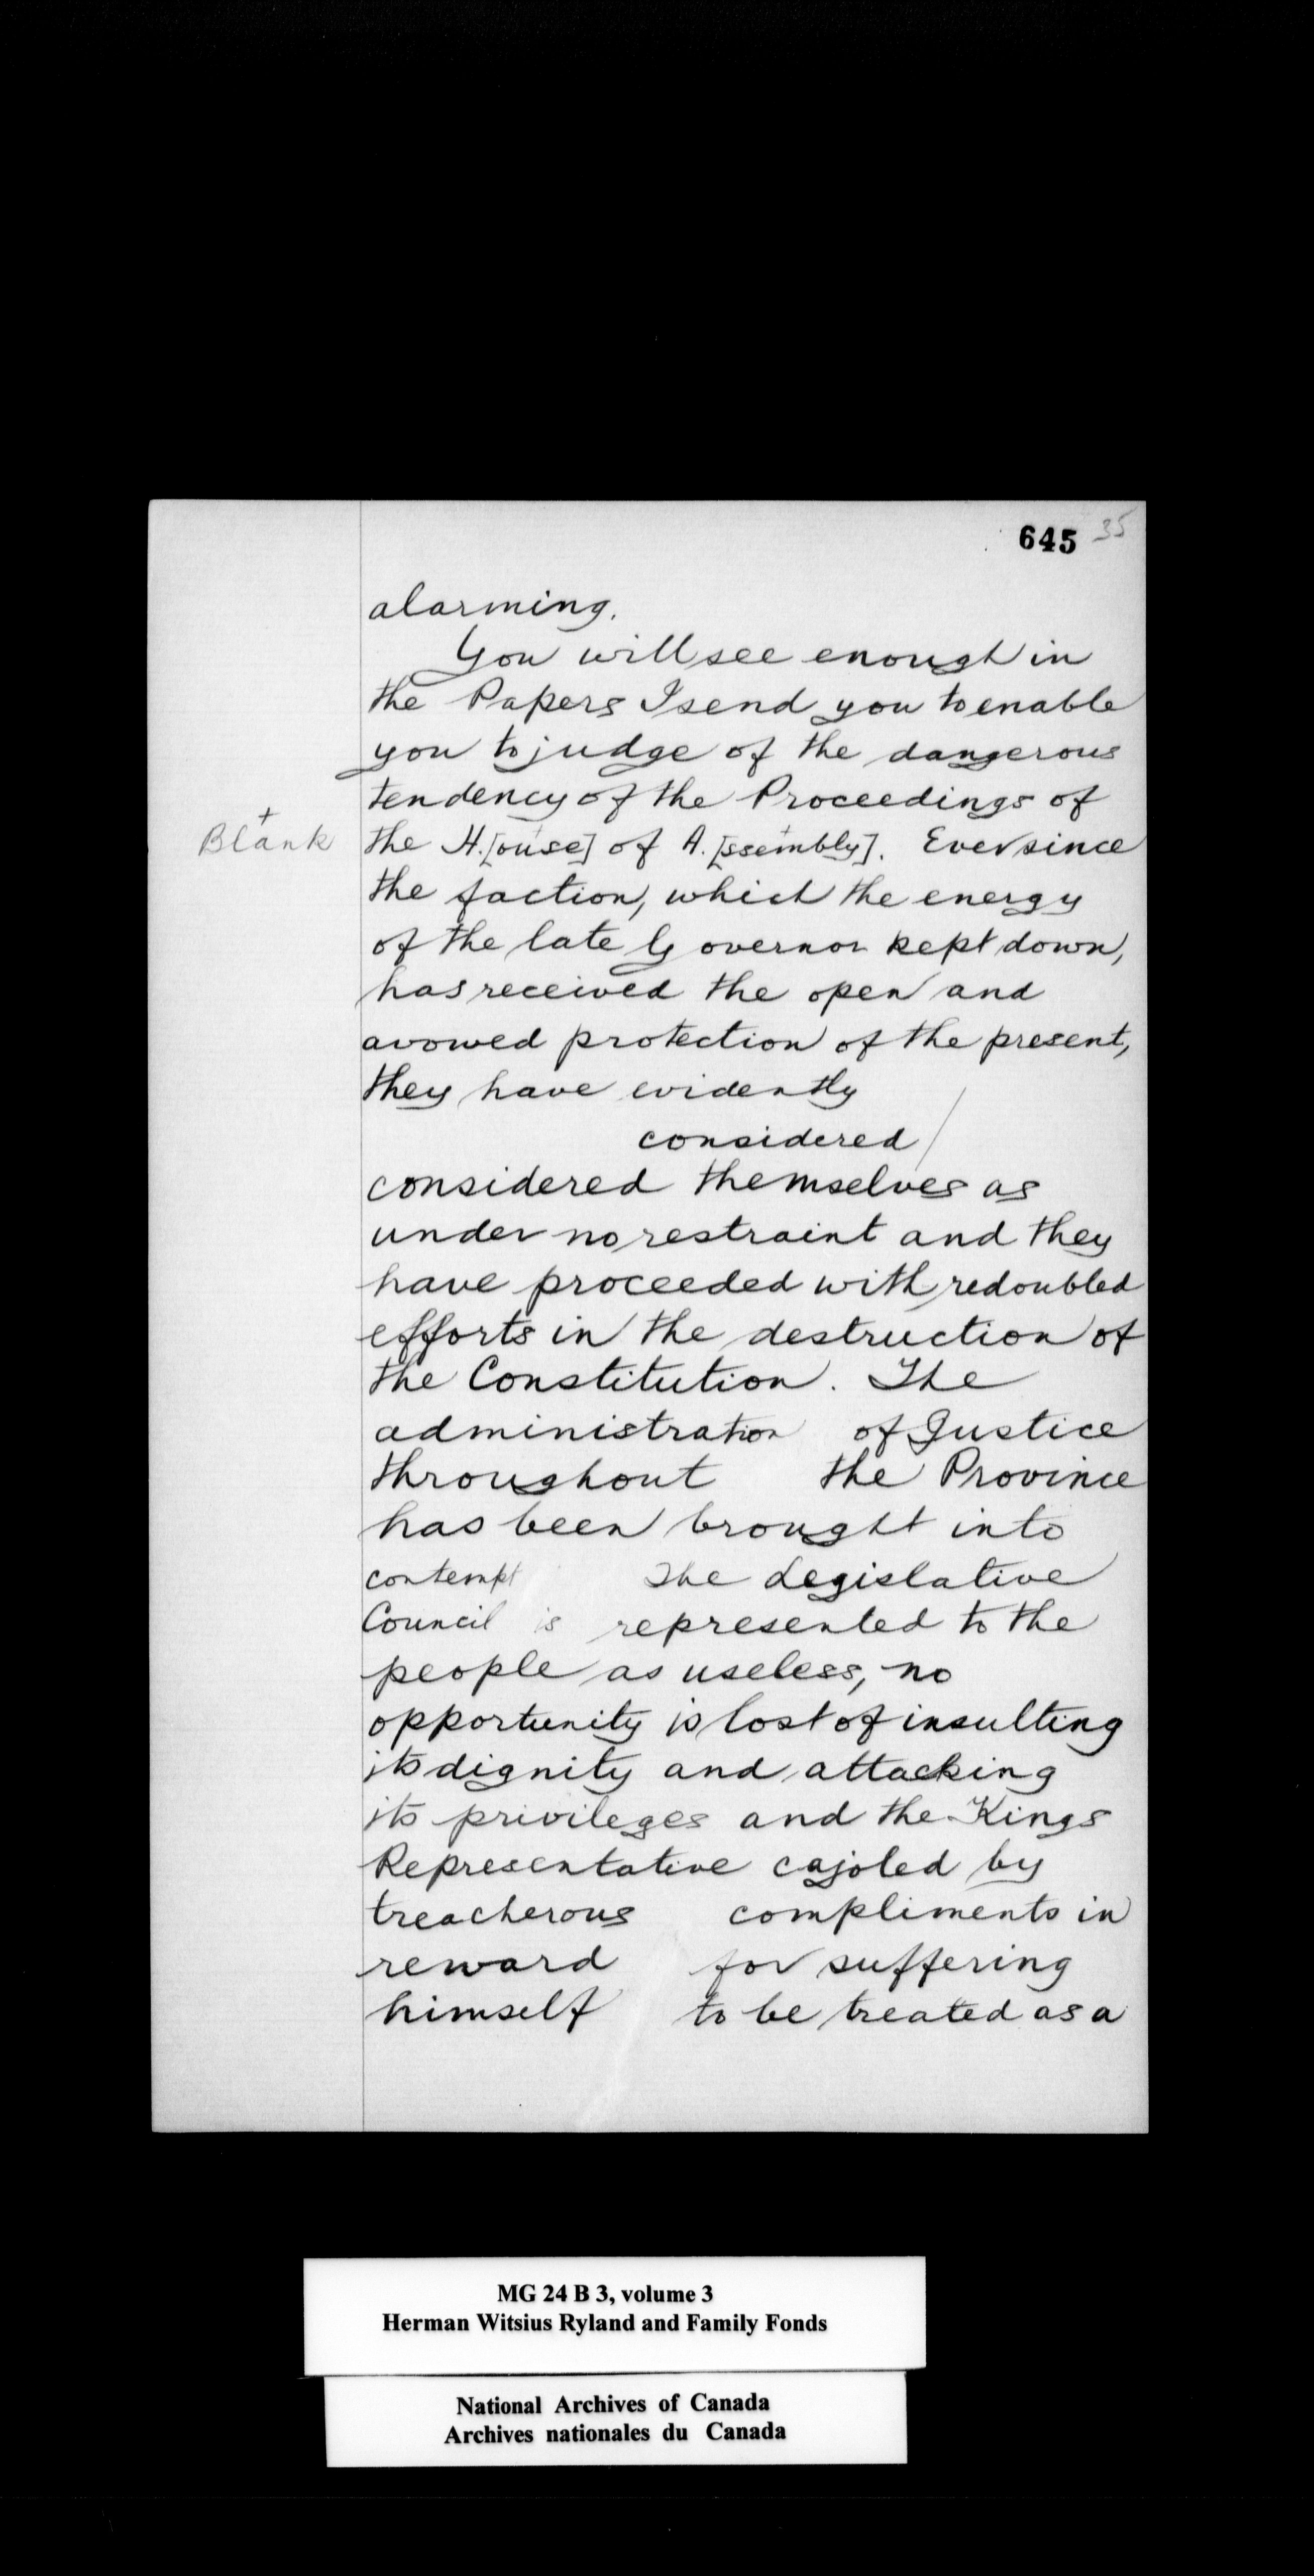 645 35
alarming.
You will see enough in
the Papers I send you to enable
you to judge of the dangerous
tendency of the Proceedings of
+
Blank
the H.[ouse] of A.[ssembly]. Ever since
the faction, which the energy
of the late Governor kept down,
has received the open and
avowed protection of the present,
they have evidently
considered /
considered themselves as
under no restraint and they
have proceeded with redoubled
efforts in the destruction of
the Constitution. The
administration of Justice
throughout the Province
has been brought into
contempt The Legislative
Council is represented to the
people as useless, no
opportunity is lost of insulting
its dignity and attacking
its privileges and the Kings
Representative cajoled by
treacherous compliments in
reward for suffering
himself to be treated as a
MG 24 B 3, volume 3
Herman Witsius Ryland and Family Fonds
National Archives of Canada
Archives nationales du Canada